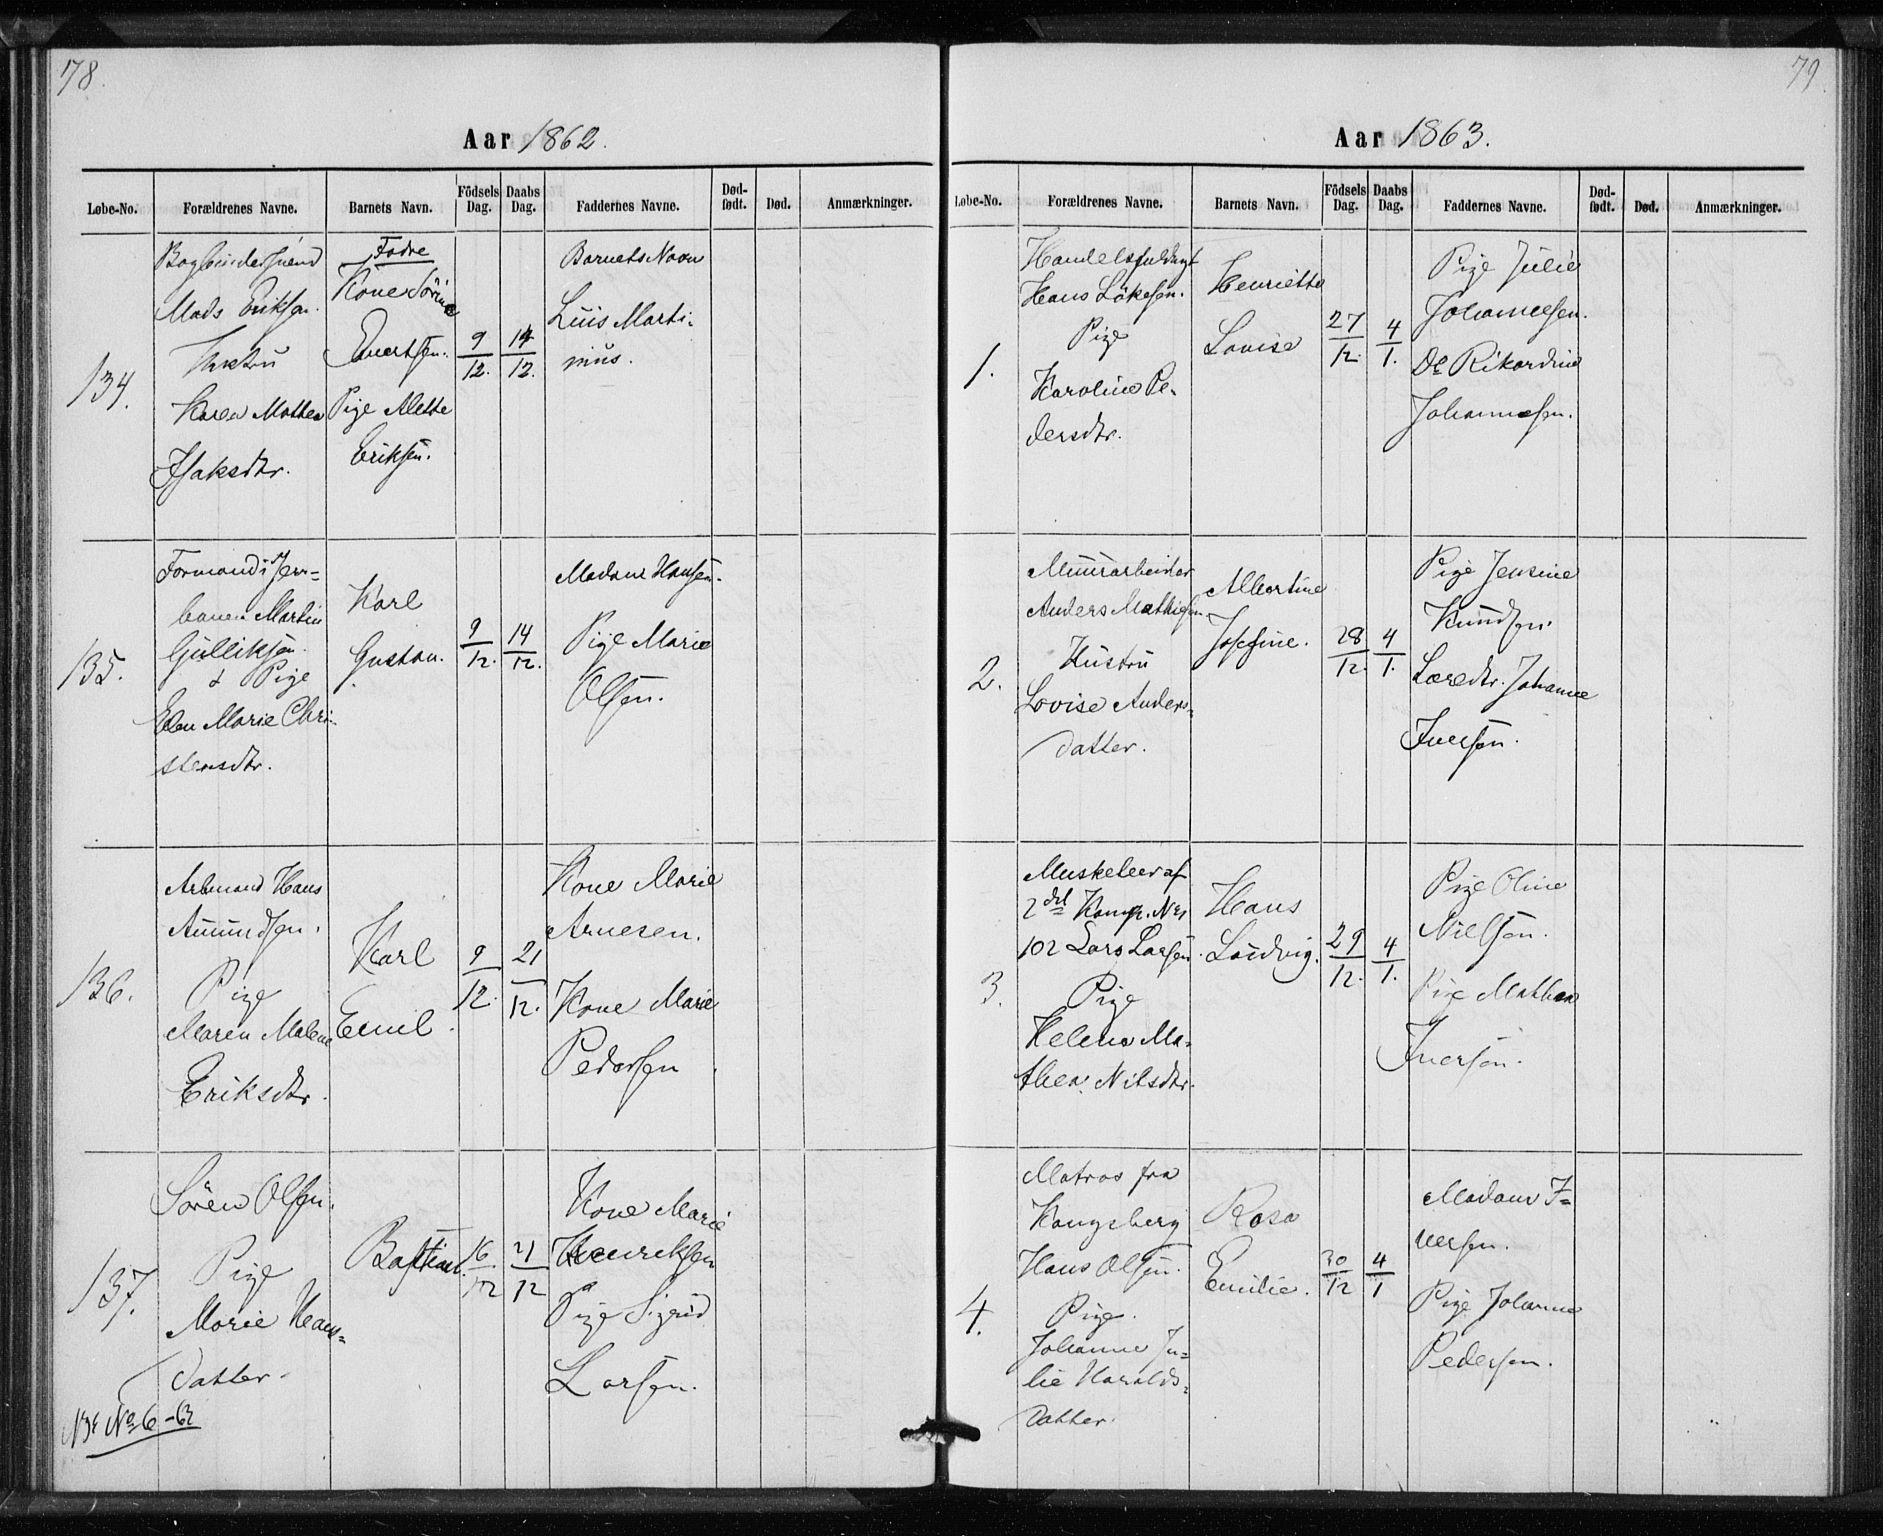 78.
Aar 1862.
Løbe-No. Forældrenes Navne. Barnets Navn. Födsels Dag. Daabs Dag. Faddernes Navne. Død-født. Død. Anmærkninger.
134.
Bogbindersvend
Mads Eriksen.
Hustru
Karen Mathea
Isaksdtr.
Fadre
Kone Sörine
Evertsen.
Pige Mette
Eriksen.
9/12.
14/12.
Barnets Navn
Luis Marti-
nius.
135.
Formand i Jern-
banen Martin
Gulliksen.
& Pige
Elen Marie Chri-
stensdtr.
Karl
Gustav.
9/12.
14/12.
Madame Hansen.
Pige Marie
Olsen.
136.
Arbmand Hans
Amundsen.
Pige
Maren Malene
Eriksdtr.
Karl
Emil.
9/12.
21/12.
Kone Marie
Arnesen.
Kone Marie
Pedersen
137.
Sören Olsen.
Pige
Marie Hans-
datter.
Bastian.
16/12
21/12
Kone Marie
Henriksen
Pige Sigrid
Larsen.
No 6-62
79.
Aar 1863.
Løbe-No. Forældrenes Navne. Barnets Navn. Födsels Dag. Daabs Dag. Faddernes Navne. Død-født. Død. Anmærkninger.
1.
Handelsfuldmgt
Hans Lökesen.
Pige
Karoline Pe-
dersdtr.
Henriette
Lovise
27/12.
4/1.
Pige Julie
Johannesen.
Do Rikardine
Johannesen.
2.
Muurarbeider
Anders Mathisen
Hustru
Lovise Anders-
datter.
Albertine
Josefine.
28/12.
4/1.
Pige Jensine
Knudsen.
Læredtr. Johanne
Iversen.
3.
Musketeer af
2det Komp. No
102 Lars Larsen
Pige
Helene Ma-
thea Nilsdtr.
Hans
Ludvig.
29/12.
4/1.
Pige Oline
Nielsen.
Pige Mathea
Iversen.
4.
Matros fra
Kongsberg
Hans Olsen.
Pige.
Johanne Ju-
lie Haralds-
datter.
Rosa
Emilie.
30/12
4/1
Madame I-
versen.
Pige Johanne
Pedersen.